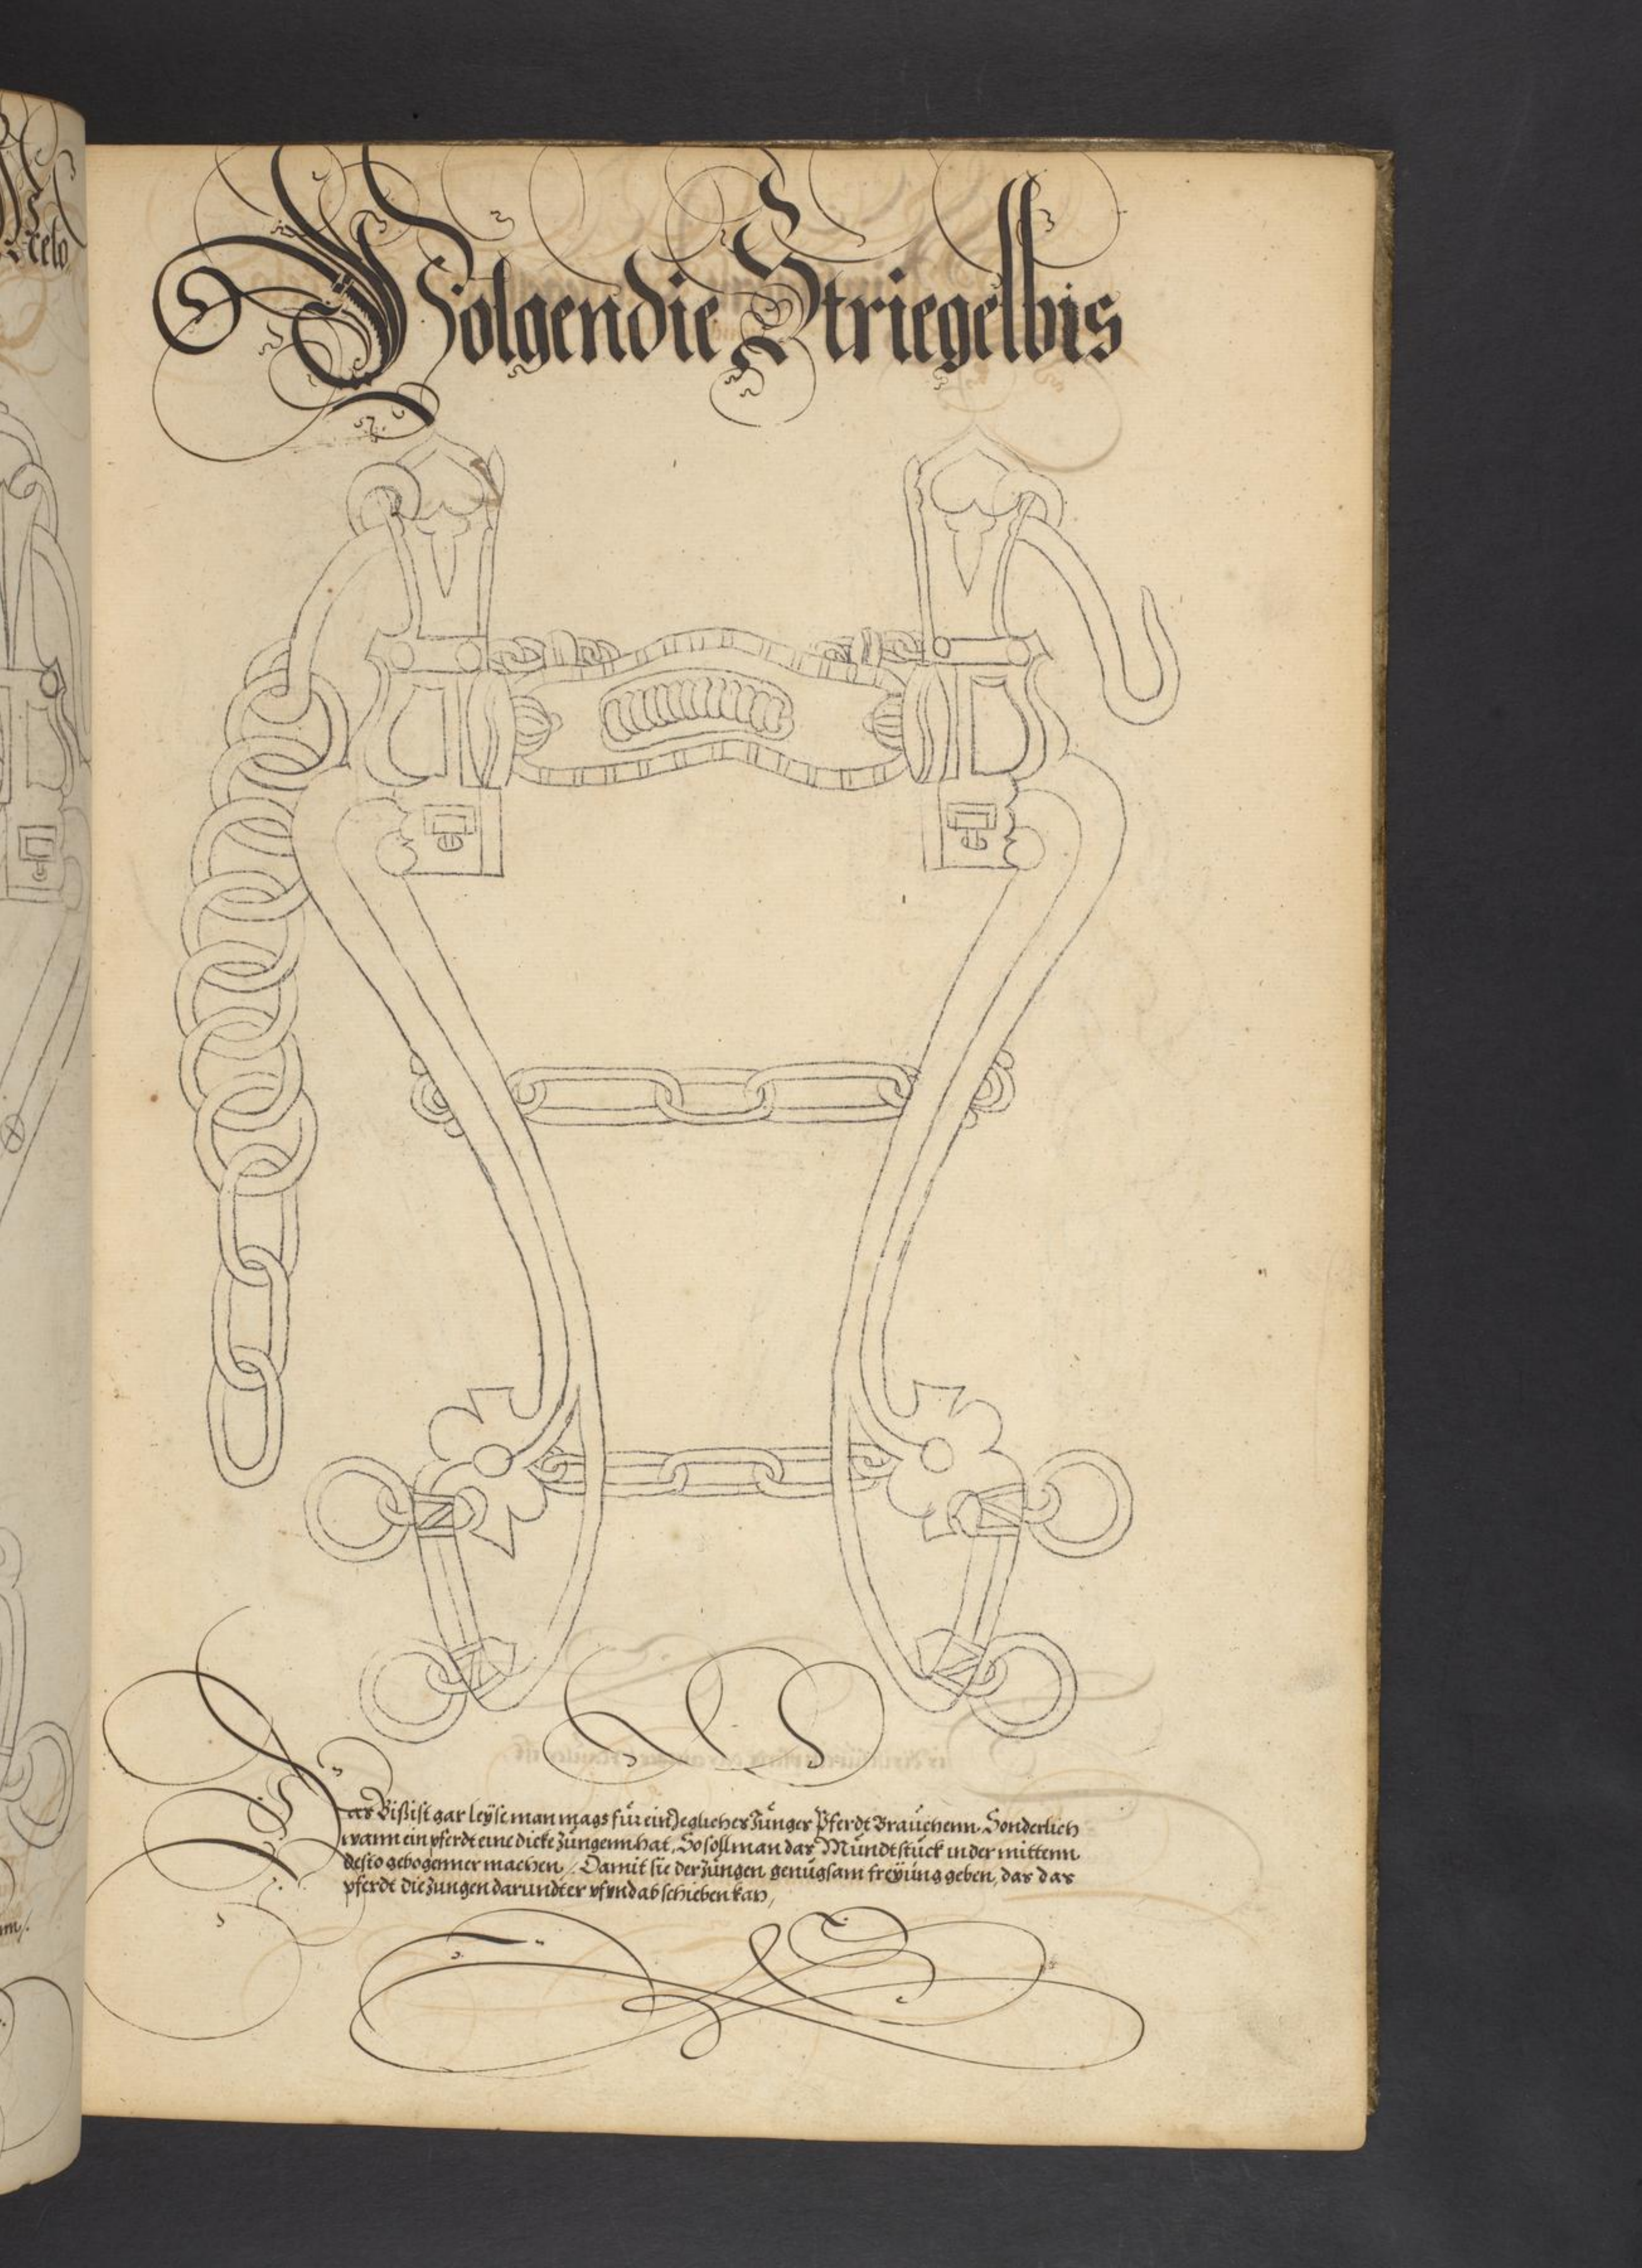 Folgen die Striegelbis
Das Bißist gar leÿse man mags für ein Jegliches Jünger Pferdt Braüchenn. Sonderlich
wann ein pferdt eine dicke züngenn hat, So soll man das Mündtstück in der mittenn
desto gebogenner machen /. Damit sie der züngen genügsam freÿüng geben, das das
pferdt die zungen darundter vf vnd ab schieben kan /